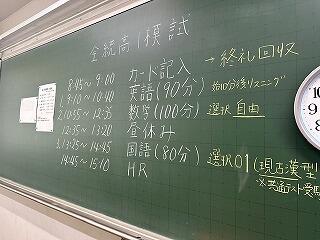 全統高1模試
8:45〜9:00 カード記入 → 終礼回収
1. 9:10〜10:40 英語(90分) 始10分後リスニング
2. 10:55〜12:35 数学(100分) 選択 自由
12:35〜13:20 昼休み
3. 13:25〜14:45 国語(80分) 選択01(現古漢型
14:45〜15:10 HR ※共通テスト受験